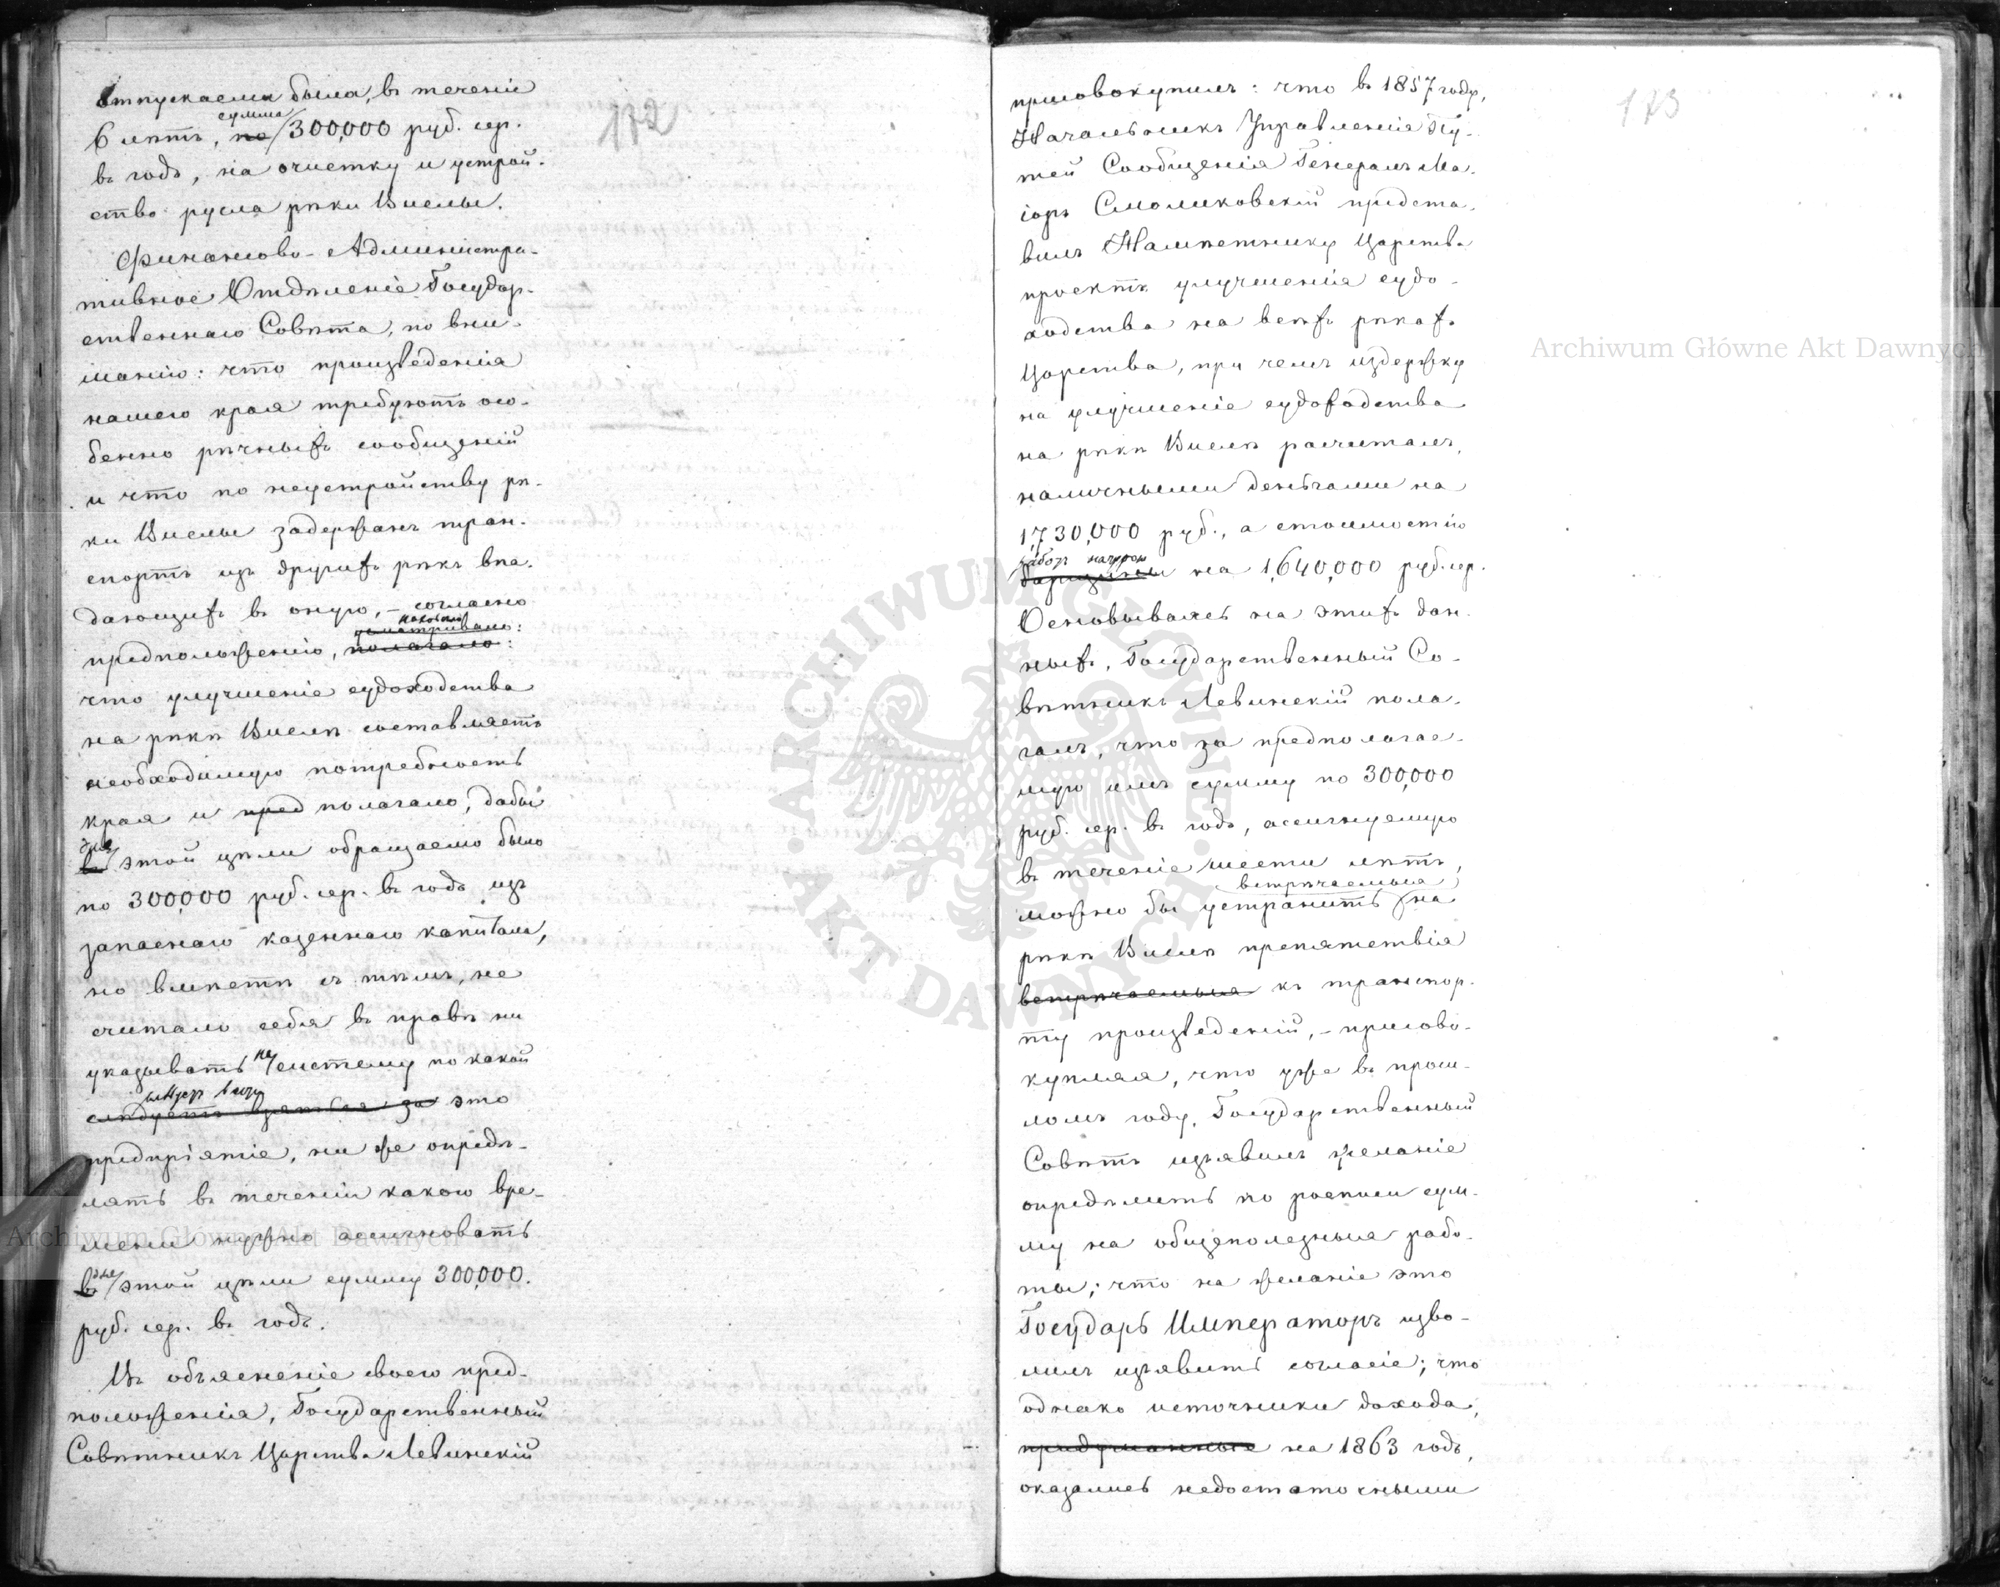 отпускаема была, въ теченіе
6 лѣтъ, по сумма 300,000 руб. сер.
въ годъ, на очистку и устрой-
ство русла рѣки Вислы.
Финансово-Администра-
тивное Отдѣленіе Государ-
ственнаго Совѣта, по вни-
манію: что произведенія
нашего края требуютъ осо-
бенно рѣчныхъ сообщеній
и что по неустройству рѣ-
ки Вислы задержанъ тран-
спортъ изъ другихъ рѣкъ впа-
дающихъ въ оную, – согласно
находило
усматривало:
предположенію, полагало:
что улучшеніе судоходства
на рѣкѣ Вислѣ составляетъ
необходимую потребность
края и предполагало, дабы
для
въ этой цѣли обращаемо было
по 300,000 руб. сер. въ годъ изъ
запаснаго казеннаго капитала,
но вмѣстѣ съ тѣмъ, не
считало себя въ правѣ ни
указывать на систему по какой
слѣдуетъ взяться за это
предпріятіе, ни же опредѣ-
лять въ теченіи какого вре-
мени нужно ассигновать
для
въ этой цѣли сумму 300,000.
руб. сер. въ годъ.
Въ объясненіе своего пред-
положенія, Государственный
Совѣтникъ Царства Левинскій
172
присовокупилъ: что въ 1857 году,
Начальникъ Управленія Пу-
тей Сообщенія Генералъ Ма-
іоръ Смоликовскій предста-
вилъ Намѣстнику Царства
проектъ улучшенія судо-
ходства на всѣхъ рѣкахъ
Царства, при чемъ издержку
на улучшеніе судоходства
на рѣкѣ Вислѣ расчиталъ,
наличными деньгами на
1,730,000 руб., а стоимостію
работъ натурою
на 1,640,000 руб. сер.
Основываясь на этихъ дан-
ныхъ, Государственный Со-
вѣтникъ Левинскій пола-
галъ, что за предполагае-
мую имъ сумму по 300,000
руб. сер. въ годъ, ассигнуемую
въ теченіе шести лѣтъ,
встрѣчаемыя
можно бы устранить на
рѣкѣ Вислѣ препятствія
встрѣчаемыя къ транспор-
ту произведеній, – присово-
купляя, что уже въ прош-
ломъ году, Государственный
Совѣтъ изъявилъ желаніе
опредѣлить по росписи сум-
му на общеполезныя рабо-
ты; что на желаніе это
Государь Императоръ изво-
лилъ изъявить согласіе; что
однако источники дохода,
придуманные на 1863 годъ,
оказались недостаточными
173
Archiwum Główne Akt Dawnych
Archiwum Główne Akt Dawnych
ARCHIWUM GŁÓWNE
AKT DAWNYCH